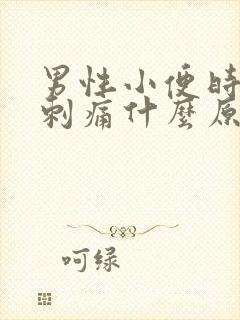 男性小便時
刺痛什麼原
呵绿